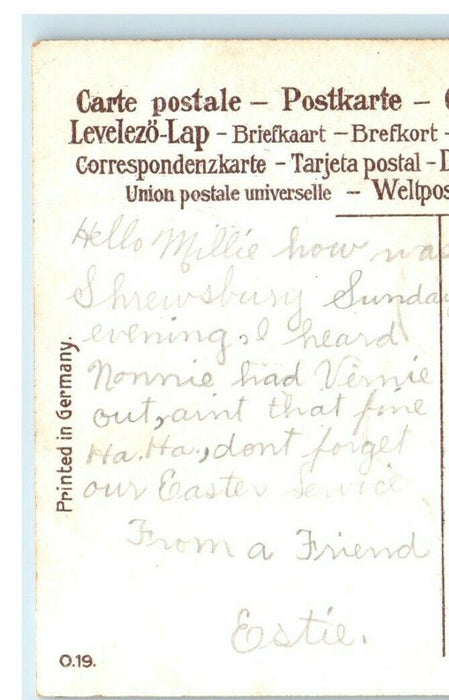 Carte postale – Postkarte –
Levelező-Lap – Briefkaart – Brefkort -
Correspondenzkarte – Tarjeta postal –
Union postale universelle – Weltpos
Hello Millie how was
Shrewsbury Sunday
evening, I heard
Nonnie had Vernie
out, aint that fine
Ha. Ha., dont forget
our Easter service
From a Friend
Estie.
Printed in Germany.
O.19.